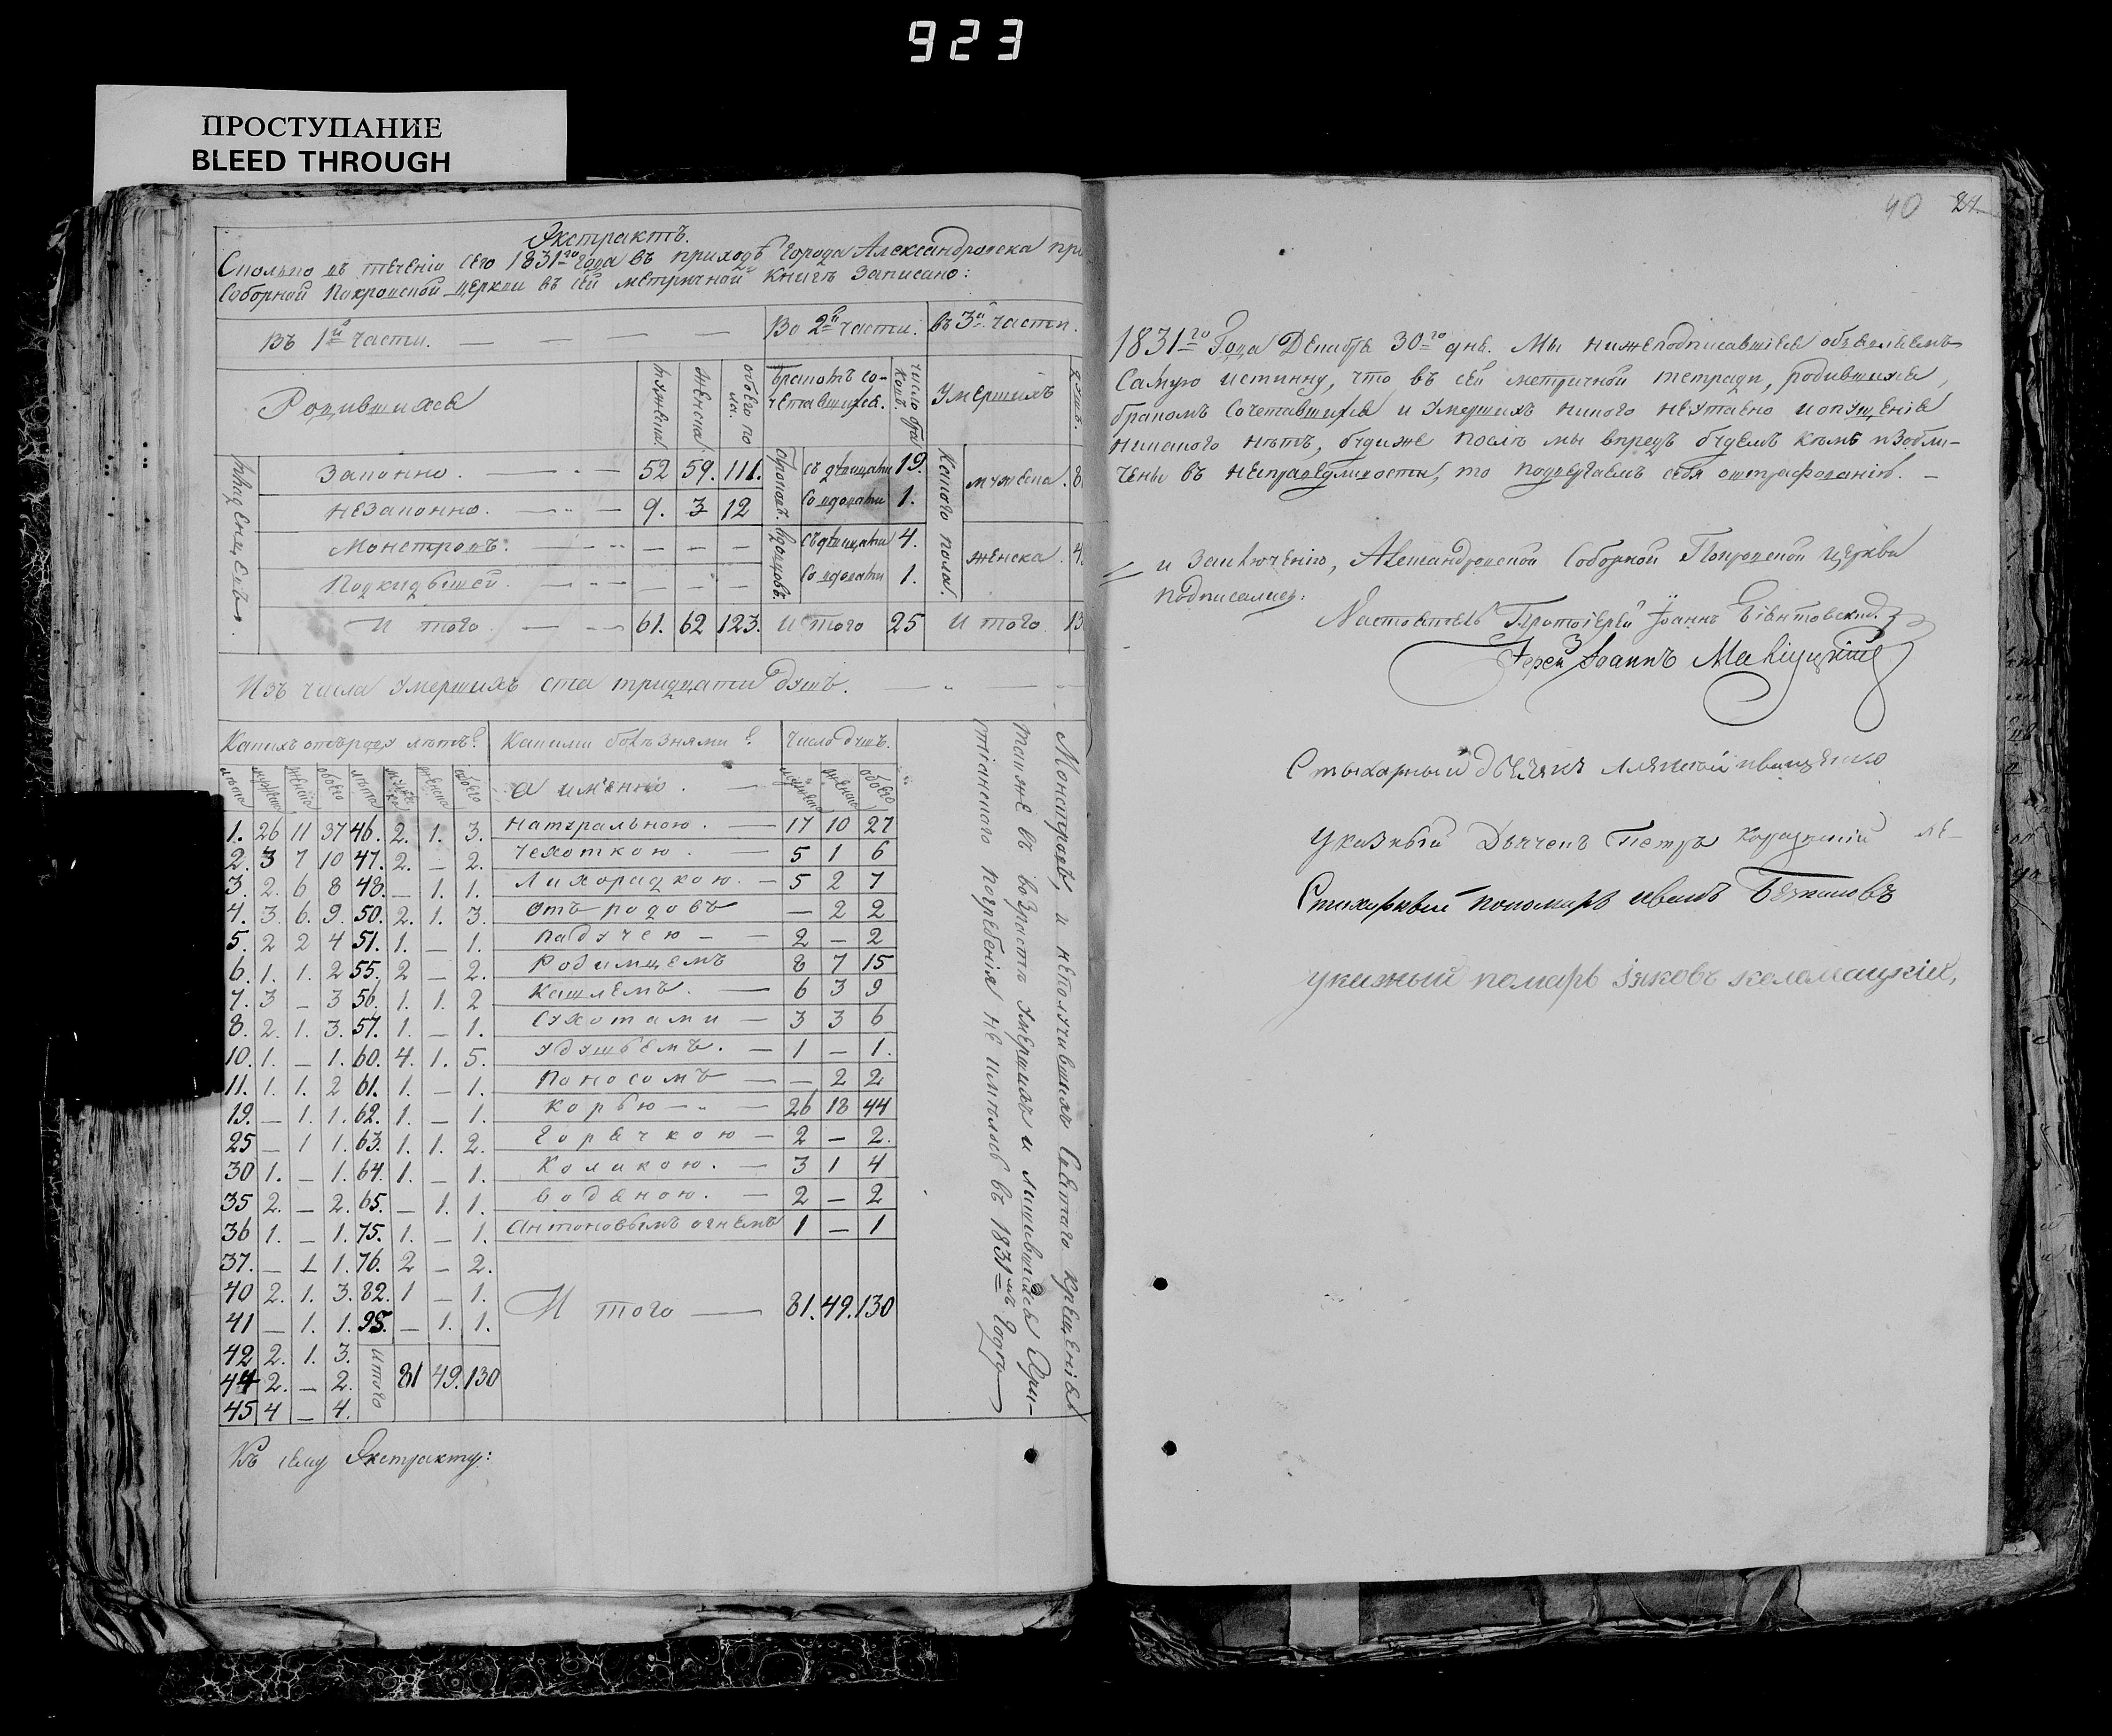 923
ПРОСТУПАНИЕ
BLEED THROUGH
40 27
Экстрактъ.
Сколько въ теченіи сего 1831го Года въ приходѣ Города Александровска при
Соборной Покровской церкви въ сей метричной Книгѣ Записано:
Въ 1й части. — — — Во 2й части. въ 3й части.
Родившихся мужеска женска обоего пола. Бракомъ сочетавшихся. число бра Умершихъ душъ.
младенцевъ.
Законно. — 52 59. 111. Отроковъ. съ дѣвицами 19. Какого пола. мужеска. 8
незаконно. — 9. 3 12 Со вдовами 1.
Монстровъ. — — — — Вдовцовъ. съ дѣвицами 4. женска. 4
Подкидышей. — — — — Со вдовами 1.
И того. — 61. 62 123. И того 25 И того. 13
Изъ числа умершихъ ста тридцати душъ. —
Какихъ отъ роду лѣтъ? Какими болѣзнями? Число душъ.
лѣта мужеска женска обоего лѣта мужеска женска обоего а именно. мужеска женска обоего
1. 26 11 37 46. 2. 1. 3. натуральною. — 17 10 27
2. 3 7 10 47. 2. — 2. Чехоткою. — 5 1 6
3. 2. 6 8 48. — 1. 1. Лихорадкою. — 5 2 7
4. 3. 6. 9. 50. 2. 1. 3. Отъ родовъ — 2 2
5. 2 2 4 51. 1. — 1. Падучею — 2 — 2
6. 1. 1. 2 55. 2 — 2. Родимцемъ 8 7 15
7. 3 — 3 56. 1. 1. 2 Кашлемъ. — 6 3 9
8. 2. 1. 3. 57. 1. — 1. Сухотами — 3 3 6
10. 1. — 1. 60. 4. 1. 5. удушьемъ. — 1 — 1.
11. 1. 1. 2 61. 1. — 1. Поносомъ — — 2 2
19. — 1. 1. 62. 1. — 1. Корью — 26 18 44
25 — 1 1. 63. 1. 1. 2. Горячкою — 2 — 2.
30 1. — 1. 64. 1. — 1. Коликою. — 3 1 4
35 2. — 2. 65. — 1. 1. водяною. — 2 — 2
36 1. — 1. 75. 1. — 1. Антоновымъ огнемъ 1 — 1
37. — 1 1. 76. 2 — 2.
40 2. 1. 3. 82. 1 — 1. И того — 81. 49. 130
41 — 1. 1. 95. — 1. 1.
42 2. 1. 3. итого 81 49. 130
44 2. — 2.
45 4 — 4.
Монстровъ, и неполучившихъ Святаго Крещенія
также въ возрастѣ умершихъ и лишившихся Хри-
стіанскаго погребенія не имѣлось въ 1831мъ Году
Къ сему Экстракту:
1831го Года Декабря 30го дня. Мы нижеподписавшіеся объявляемъ
самую истинну, что въ сей метричной тетради, родившихся,
бракомъ сочетавшихся и умершихъ никого неутаено и опущенія
никакого нѣтъ, будиже послѣ мы впредъ будемъ кѣмъ изобли-
чены въ несправедливости, то подвергаемъ себя оштрафованію. —
и Заключенію, Александровской Соборной Покровской Церкви
подписались:
Настоятель Протоіерей Іоаннъ
Іерей Іоаннъ
Стихарный дьячекъ Алексѣй Иващенко
Указный Дьячекъ Петръ
Стихарный пономарь Иванъ
указный помарь Іяковъ коломацкій,